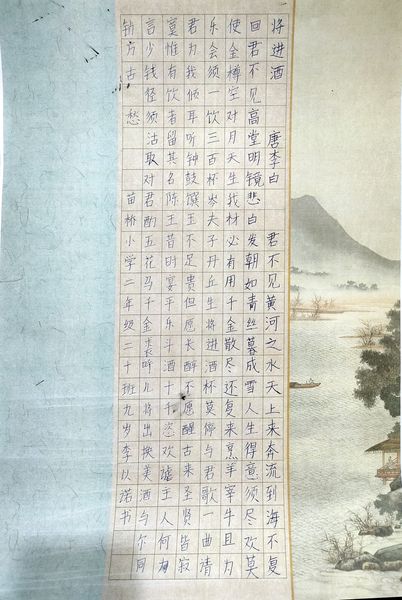 将进酒 唐李白 君不见黄河之水天上来奔流到海不复
回君不见高堂明镜悲白发朝如青丝暮成雪人生得意须尽欢莫
使金樽空对月天生我材必有用千金散尽还复来烹羊宰牛且为
乐会须一饮三百杯岑夫子丹丘生将进酒杯莫停与君歌一曲请
君为我倾耳听钟鼓馔玉不足贵但愿长醉不愿醒古来圣贤皆寂
寞惟有饮者留其名陈王昔时宴平乐斗酒十千恣欢谑主人何为
言少钱径须沽取对君酌五花马千金裘呼儿将出换美酒与尔同
销万古愁 苗桥小学二年级二十班九岁李以诺书